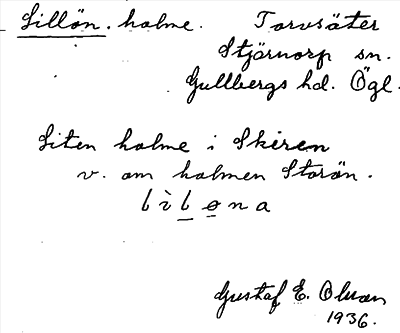 Lillön. holme. Torvsäter
Stjärnorp sn.
Gullbergs hd. Ögl.
Liten holme i Skiren
v. om holmen Storön.
Gustaf E. Olson
1936.